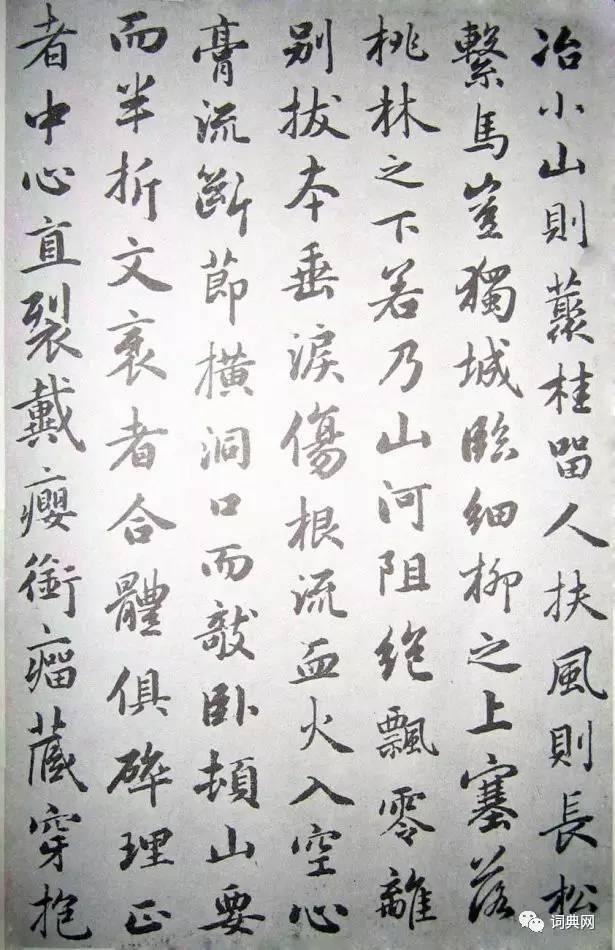 冶小山則藂桂留人扶風則長松
繫馬豈獨城臨細柳之上塞落
桃林之下若乃山河阻絕飄零離
別拔本垂淚傷根流血火入空心
膏流斷節橫洞口而敧卧頓山要
而半折文衺者合體俱碎理正
者中心直裂戴癭銜瘤藏穿抱
词典网